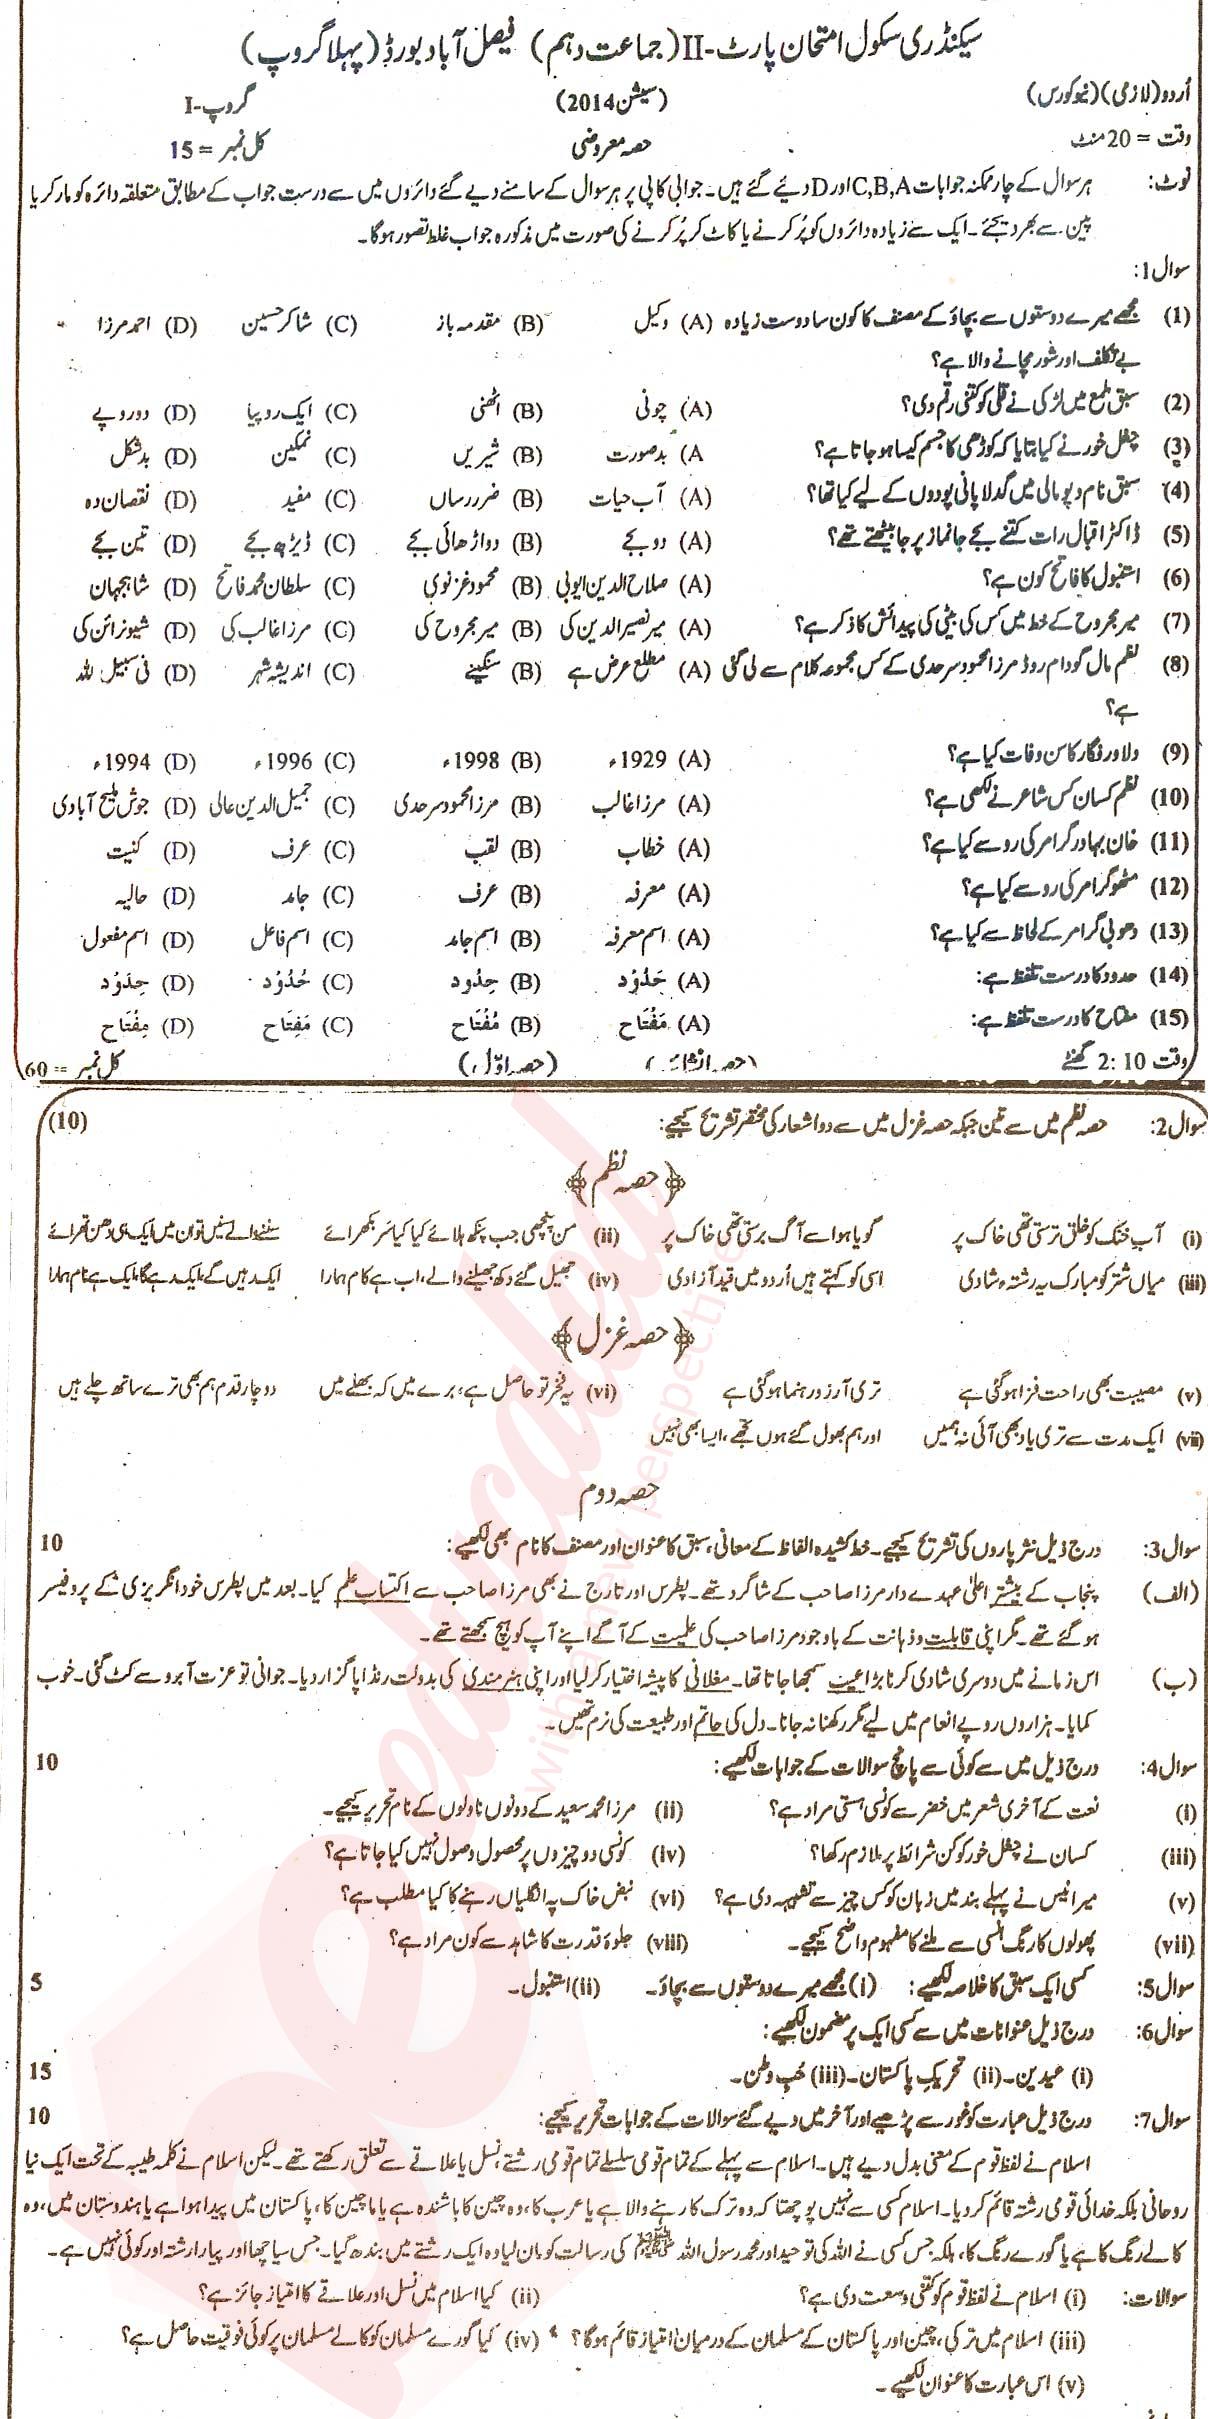 سیکنڈری سکول امتحان پارٹ-II (جماعت دہم) فیصل آباد بورڈ (پہلا گروپ)
اُردو (لازمی) (نیو کورس) (سیشن 2014) گروپ-I
وقت = 20 منٹ حصہ معروضی کل نمبر = 15
نوٹ: ہر سوال کے چار ممکنہ جوابات C,B,A اور D دئیے گئے ہیں۔ جوابی کاپی پر ہر سوال کے سامنے دیے گئے دائروں میں سے درست جواب کے مطابق متعلقہ دائرہ کو مارکر یا
پین سے بھر دیجئے۔ ایک سے زیادہ دائروں کو پُر کرنے یا کاٹ کر پُر کرنے کی صورت میں مذکورہ جواب غلط تصور ہوگا۔
سوال 1:
(1) مجھے میرے دوستوں سے بچاؤ کے مصنف کا کون سا دوست زیادہ (A) وکیل (B) مقدمہ باز (C) شاکر حسین (D) احمد مرزا
بے تکلف اور شور مچانے والا ہے؟
(2) سبق ملمع میں لڑکی نے قلی کو کتنی رقم دی؟ (A) چونی (B) اٹھنی (C) ایک روپیا (D) دو روپے
(3) چغل خور نے کیا بتایا کہ کوڑھی کا جسم کیسا ہو جاتا ہے؟ (A بدصورت (B) شیریں (C) نمکین (D) بدشکل
(4) سبق نام دیو مالی میں گدلا پانی پودوں کے لیے کیا تھا؟ (A) آب حیات (B) ضرر رساں (C) مفید (D) نقصان دہ
(5) ڈاکٹر اقبال رات کتنے بجے جانماز پر جا بیٹھتے تھے؟ (A) دو بجے (B) دو اڑھائی بجے (C) ڈیڑھ بجے (D) تین بجے
(6) استنبول کا فاتح کون ہے؟ (A) صلاح الدین ایوبی (B) محمود غزنوی (C) سلطان محمد فاتح (D) شاہجہان
(7) میر مجروح کے خط میں کس کی بیٹی کی پیدائش کا ذکر ہے؟ (A) میر نصیر الدین کی (B) میر مجروح کی (C) مرزا غالب کی (D) شیو نرائن کی
(8) نظم مال گودام روڈ مرزا محمود سرحدی کے کس مجموعہ کلام سے لی گئی (A) مطلع عرض ہے (B) سنگینے (C) اندیشہ شہر (D) فی سبیل للہ
ہے؟
(9) دلاور فگار کا سن وفات کیا ہے؟ (A) 1929ء (B) 1998ء (C) 1996ء (D) 1994ء
(10) نظم کسان کس شاعر نے لکھی ہے؟ (A) مرزا غالب (B) مرزا محمود سرحدی (C) جمیل الدین عالی (D) جوش ملیح آبادی
(11) خان بہادر گرامر کی رو سے کیا ہے؟ (A) خطاب (B) لقب (C) عرف (D) کنیت
(12) مٹھو گرامر کی رو سے کیا ہے؟ (A) معرفہ (B) عرف (C) جامد (D) حالیہ
(13) دھوبی گرامر کے لحاظ سے کیا ہے؟ (A) اسم معرفہ (B) اسم جامد (C) اسم فاعل (D) اسم مفعول
(14) حدود کا درست تلفظ ہے: (A) حَدُوْد (B) حِدُود (C) حُدُوْد (D) حِدَوْد
(15) مفتاح کا درست تلفظ ہے: (A) مَفْتَاح (B) مُفْتَاح (C) مَفِتَاح (D) مِفْتَاح
وقت 10 :2 گھنٹے (حصہ انشائیہ) (حصہ اوّل) کل نمبر = 60
سوال 2: حصہ نظم میں سے تین جبکہ حصہ غزل میں سے دو اشعار کی مختصر تشریح کیجیے: (10)
﴿حصہ نظم﴾
(i) آب خنک کو خلق ترستی تھی خاک پر گویا ہوا سے آگ برستی تھی خاک پر (ii) من پنچھی جب پنکھ ہلائے کیا کیا سَر بکھرائے سننے والے سنیں تو ان میں ایک ہی دھن تھرائے
(iii) میاں شتر کو مبارک یہ رشتہء شادی اسی کو کہتے ہیں اُردو میں قید آزادی (iv) جھیل گئے دکھ جھیلنے والے، اب ہے کام ہمارا ایک رہیں گے، ایک رہے گا، ایک ہے نام ہمارا
﴿حصہ غزل﴾
(v) مصیبت بھی راحت فزا ہو گئی ہے تری آرزو رہنما ہو گئی ہے (vi) یہ فخر تو حاصل ہے، برے ہیں کہ بھلے ہیں دو چار قدم ہم بھی ترے ساتھ چلے ہیں
(vii) ایک مدت سے تری یاد بھی آئی نہ ہمیں اور ہم بھول گئے ہوں تجھے، ایسا بھی نہیں
حصہ دوم
سوال 3: درج ذیل نثر پاروں کی تشریح کیجیے۔ خط کشیدہ الفاظ کے معانی، سبق کا عنوان اور مصنف کا نام بھی لکھیے: 10
(الف) پنجاب کے بیشتر اعلیٰ عہدے دار مرزا صاحب کے شاگرد تھے۔ پطرس اور تارج نے بھی مرزا صاحب سے اکتساب علم کیا۔ بعد میں پطرس خود انگریزی کے پروفیسر
ہو گئے تھے۔ مگر اپنی قابلیت و ذہانت کے باوجود مرزا صاحب کی علمیت کے آگے اپنے آپ کو ہیچ سمجھتے تھے۔
(ب) اس زمانے میں دوسری شادی کرنا بڑا عیب سمجھا جاتا تھا۔ مغلانی کا پیشا اختیار کر لیا اور اپنی ہنر مندی کی بدولت رنڈاپا گزار دیا۔ جوانی تو عزت آبرو سے کٹ گئی۔ خوب
کمایا۔ ہزاروں روپے انعام میں لیے مگر رکھنا نہ جانا۔ دل کی حاتم اور طبیعت کی نرم تھیں۔
سوال 4: درج ذیل میں سے کوئی سے پانچ سوالات کے جوابات لکھیے: 10
(i) نعت کے آخری شعر میں خضر سے کونسی ہستی مراد ہے؟ (ii) مرزا محمد سعید کے دونوں ناولوں کے نام تحریر کیجیے۔
(iii) کسان نے چغل خور کو کن شرائط پر ملازم رکھا؟ (iv) کونسی دو چیزوں پر محصول وصول نہیں کیا جاتا ہے؟
(v) میر انیس نے پہلے بند میں زبان کو کس چیز سے تشبیہہ دی ہے؟ (vi) نبض خاک پہ انگلیاں رہنے کا کیا مطلب ہے؟
(vii) پھولوں کا رنگ ہنسی سے ملنے کا مفہوم واضح کیجیے۔ (viii) جلوۂ قدرت کا شاہد سے کون مراد ہے؟
سوال 5: کسی ایک سبق کا خلاصہ لکھیے: (i) مجھے میرے دوستوں سے بچاؤ۔ (ii) استنبول۔ 5
سوال 6: درج ذیل عنوانات میں سے کسی ایک پر مضمون لکھیے:
(i) عیدین۔ (ii) تحریکِ پاکستان۔ (iii) حُبِ وطن۔ 15
سوال 7: درج ذیل عبارت کو غور سے پڑھیے اور آخر میں دیے گئے سوالات کے جوابات تحریر کیجیے: 10
اسلام نے لفظ قوم کے معنی بدل دیے ہیں۔ اسلام سے پہلے کے تمام قومی سلسلے تمام قومی رشتے، نسل یا علاقے سے تعلق رکھتے تھے۔ لیکن اسلام نے کلمہ طیبہ کے تحت ایک نیا
روحانی بلکہ خدائی قومی رشتہ قائم کر دیا۔ اسلام کسی سے نہیں پوچھتا کہ وہ ترک کا رہنے والا ہے یا عرب کا، وہ چین کا باشندہ ہے یا ماچین کا، پاکستان میں پیدا ہوا ہے یا ہندوستان میں، وہ
کالے رنگ کا ہے یا گورے رنگ کا، بلکہ جس کسی نے اللہ کی توحید اور محمد رسول اللہ ﷺ کی رسالت کو مان لیا وہ ایک رشتے میں بندھ گیا۔ جس سا چھا اور پیارا رشتہ اور کوئی نہیں ہے۔
سوالات: (i) اسلام نے لفظ قوم کو کتنی وسعت دی ہے؟ (ii) کیا اسلام میں نسل اور علاقے کا امتیاز جائز ہے؟
(iii) اسلام میں ترکی، چین اور پاکستان کے مسلمان کے درمیان امتیاز قائم ہوگا؟ (iv) کیا گورے مسلمان کو کالے مسلمان پر کوئی فوقیت حاصل ہے؟
(v) اس عبارت کا عنوان لکھیے۔